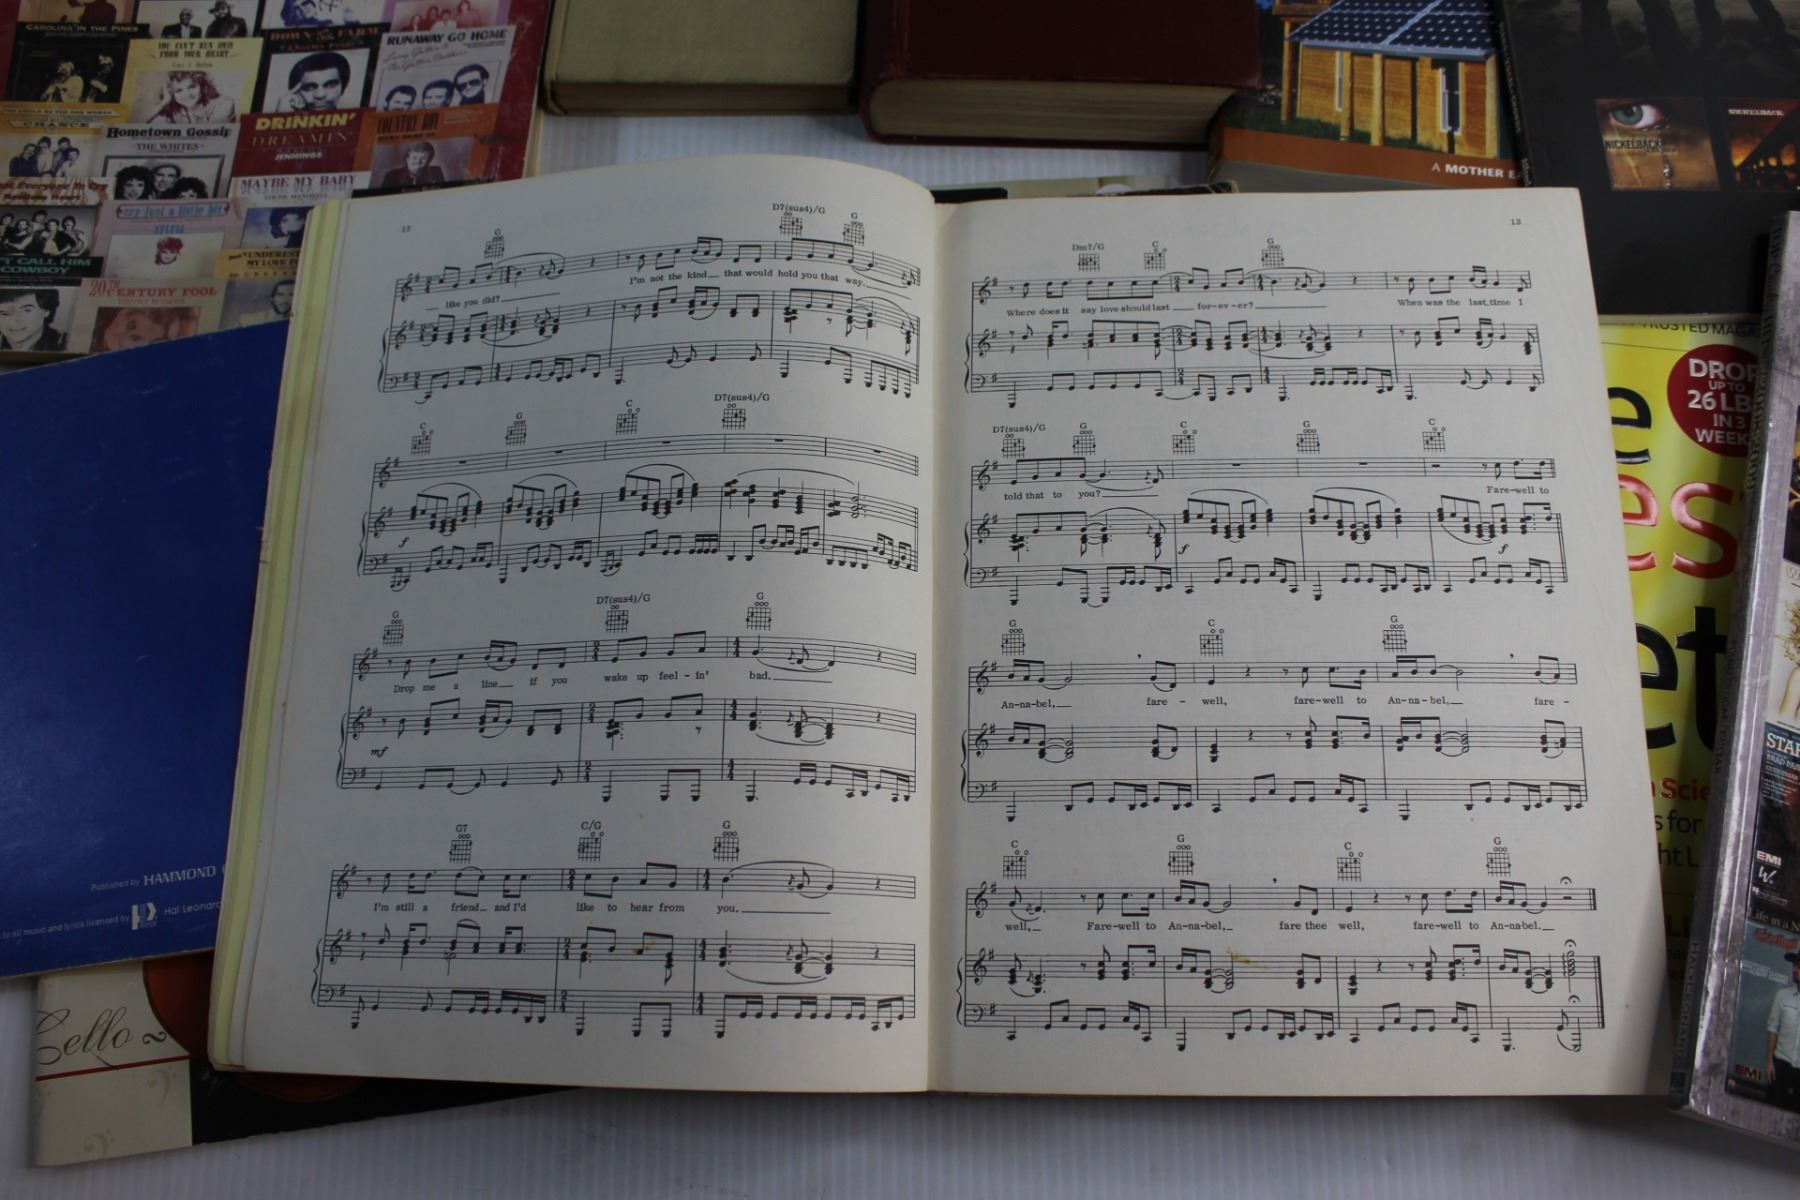 CAROLINA IN THE PINES
YOU CAN'T RUN AWAY
FROM YOUR HEART
DOWN ON THE FARM
Charley Pride
RUNAWAY GO HOME
CHANCE
Hometown Gossip
THE WHITES
DRINKIN'
DREAMIN'
JENNINGS
COUNTRY BOY
MAYBE MY BABY
LOUISE MANDRELL
cry just a little bit
SYLVIA
CALL HIM
COWBOY
20TH CENTURY FOOL
KENNY ROGERS
A MOTHER EA
NICKELBACK
NICKELBACK
TRUSTED MAGA
DROP
UP TO
26 LB
IN 3
WEEK
12
G
D7(sus4)/G
G
like you did?
I'm not the kind that would hold you that way.
C
G
C
D7(sus4)/G
f
G
D7(sus4)/G
G
Drop me a line if you wake up feel - in' bad.
mf
G7
C/G
G
I'm still a friend and I'd like to hear from you.
13
Dm7/G
C
G
Where does it say love should last for-ev-er? When was the last time I
D7(sus4)/G
G
C
G
C
told that to you? Fare-well to
f
f
G
C
G
An-na-bel, fare - well, fare-well to An-na-bel, fare -
C
G
C
G
well, Fare-well to An-na-bel, fare thee well, fare-well to An-na-bel.
Published by HAMMOND
to all music and lyrics licensed by Hal Leonard
Cello
STAR
BRAD PAIS
EMI
Life in a N
EMI